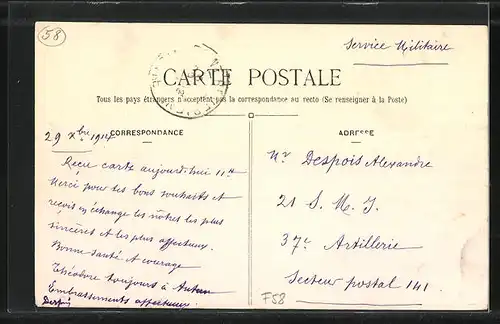 58
Service Militaire
CARTE POSTALE
Tous les pays étrangers n'acceptent pas la correspondance au recto (Se renseigner à la Poste)
CORRESPONDANCE
29 Xbre 1917
Reçu carte aujourd'hui 11h
Merci pour tes bons souhaits et
reçois en échange les nôtres les plus
sincères et les plus affectueux.
Bonne santé et courage
Théodore toujours à Autun
Embrassements affectueux.
Despois
ADRESSE
Mr Despois Alexandre
21 S. M. I.
37e Artillerie
Secteur postal 141
F58